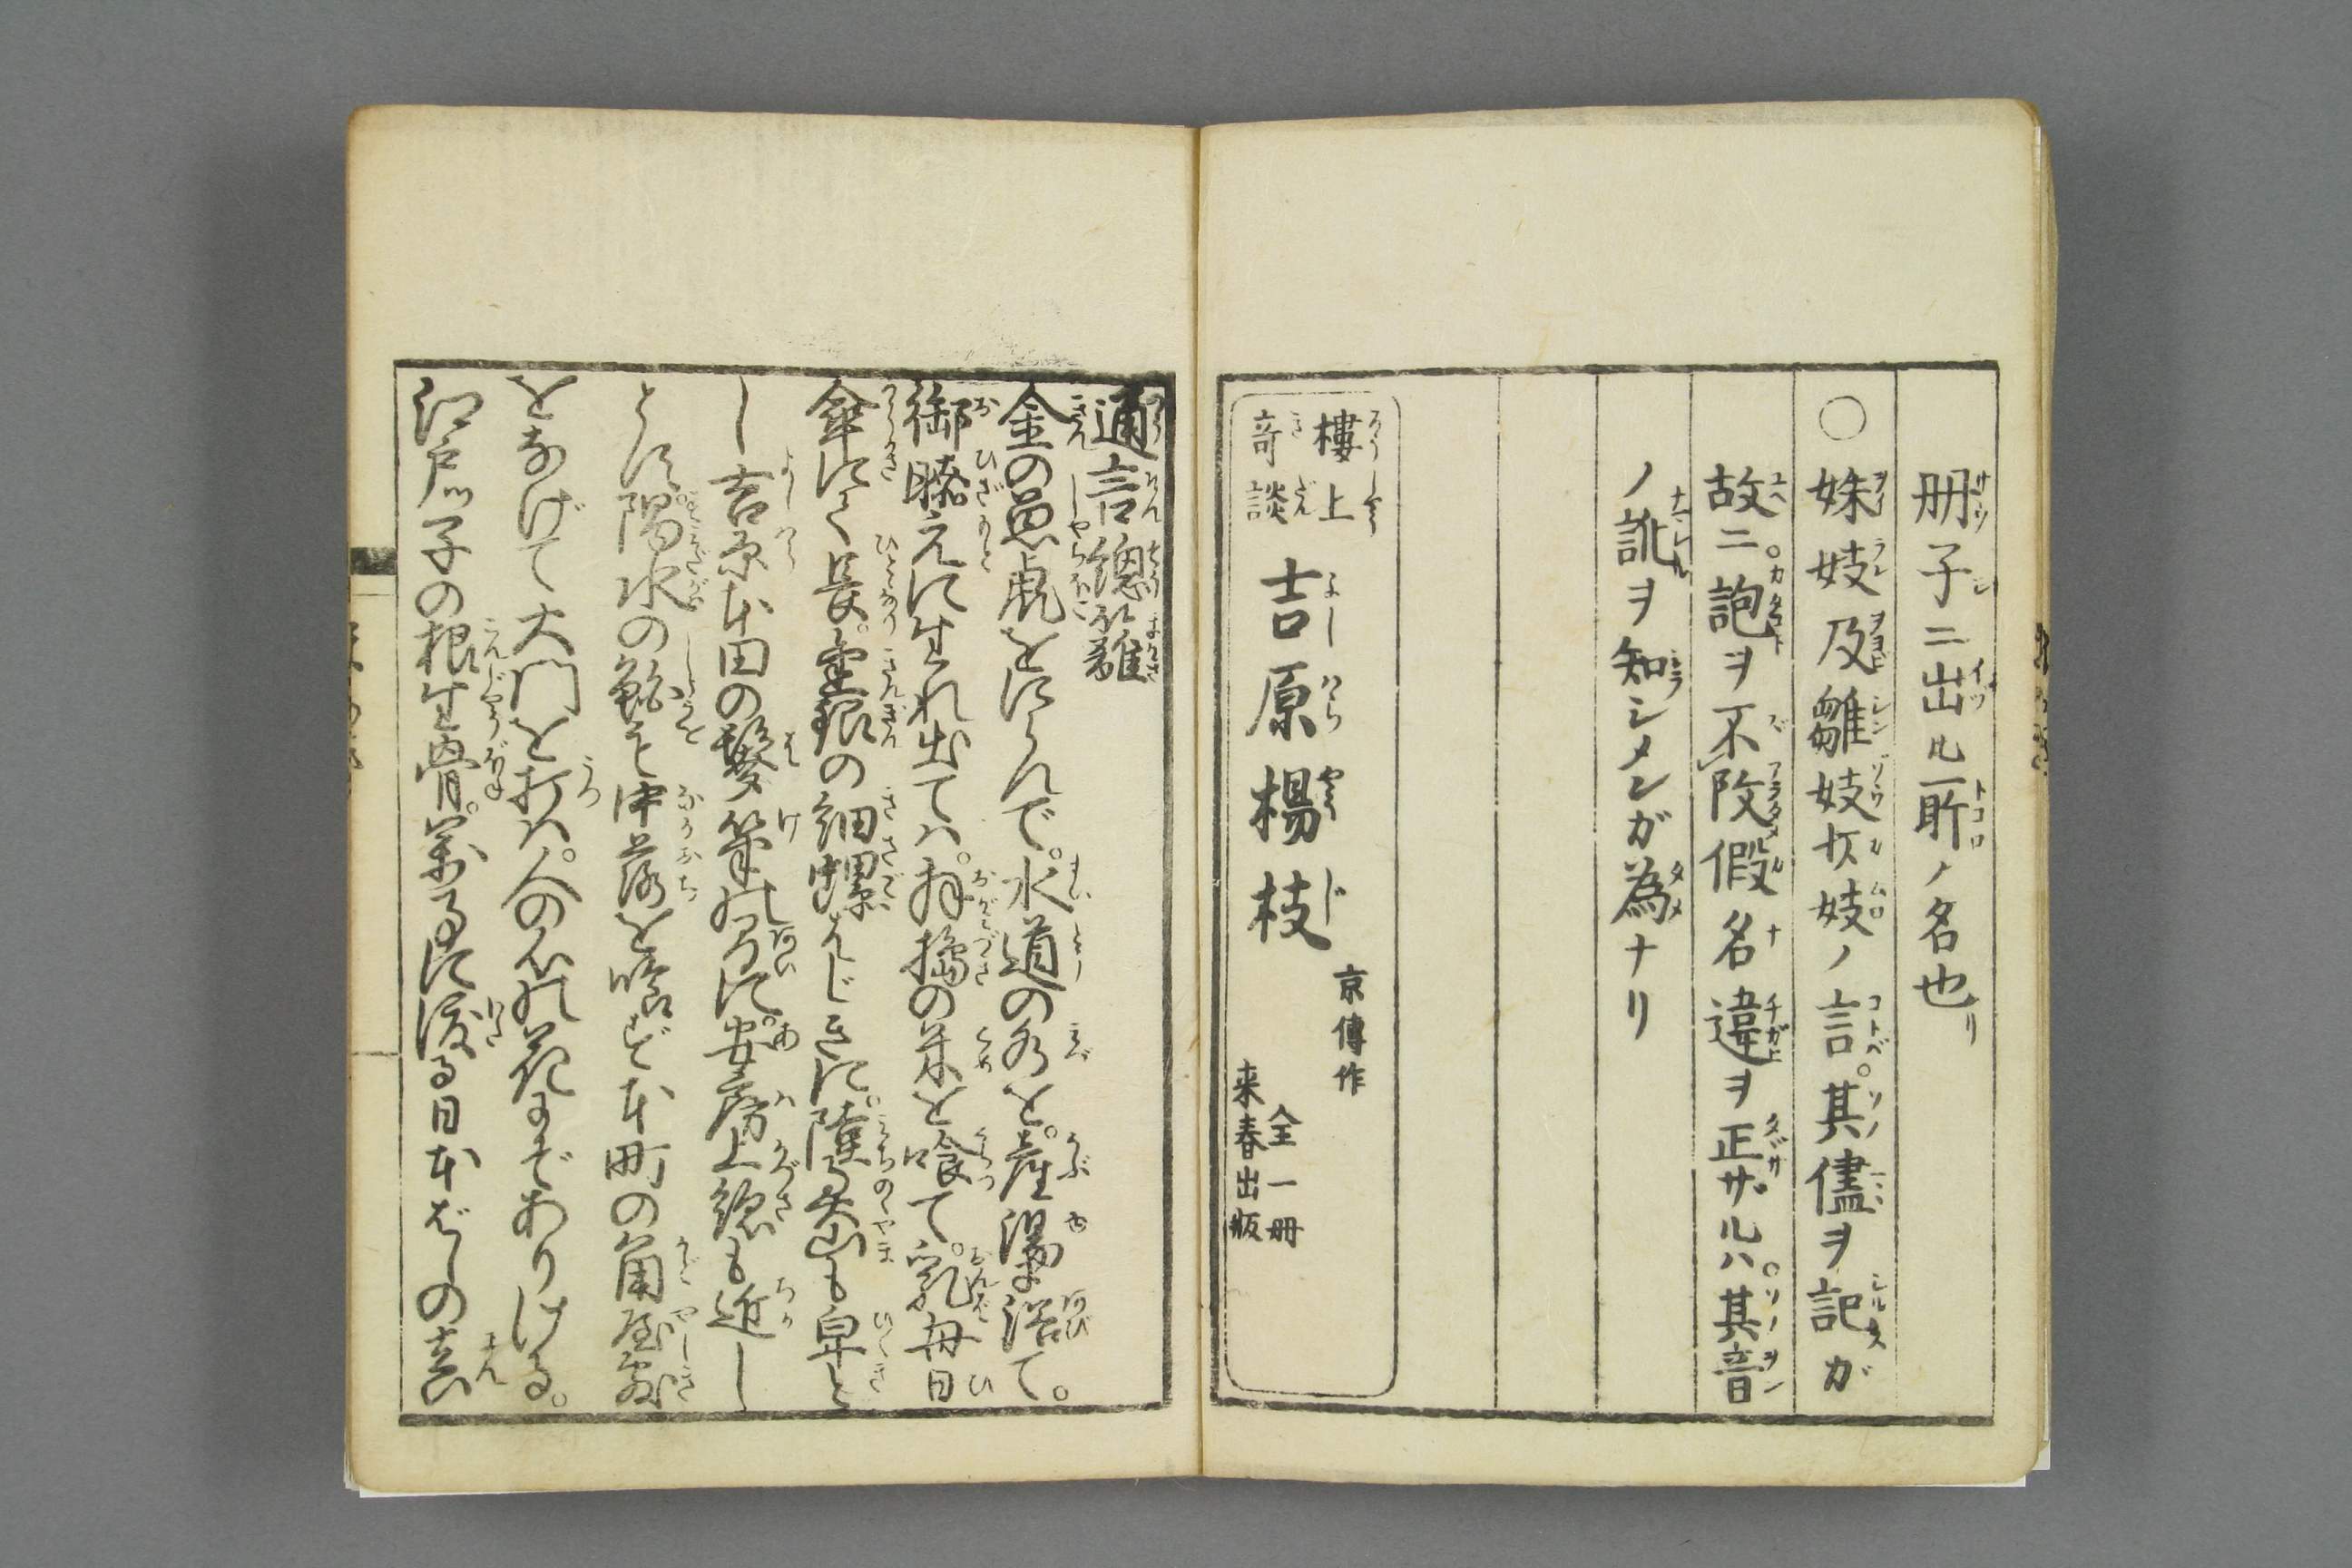 册子ニ出ル所ノ名也
○姝妓及雛妓抔妓ノ言。其儘ヲ記ガ
故ニ。訑ヲ不改假名違ヲ正サヾルハ。其音
ノ訛ヲ知シメンガ為ナリ
樓上
奇談
吉原楊枝
京傳作
全一册
来春出版
通言總籬
金の魚虎をにらんで。水道の水を。産湯に浴て。
御膝元に生れ出ては。拝搗の米を喰て。乳母日
傘にて長。金銀の細螺はじきに。陸奥山も卑と
し。吉原本田の髩筆の間に。安房上総も近し
とす。隅水の鮊も中落を喰ず。本町の角屋敷
をなげて大門を打は。人の心の花にぞありける。
江戸ッ子の根生骨。萬事に渡る日本ばしの真